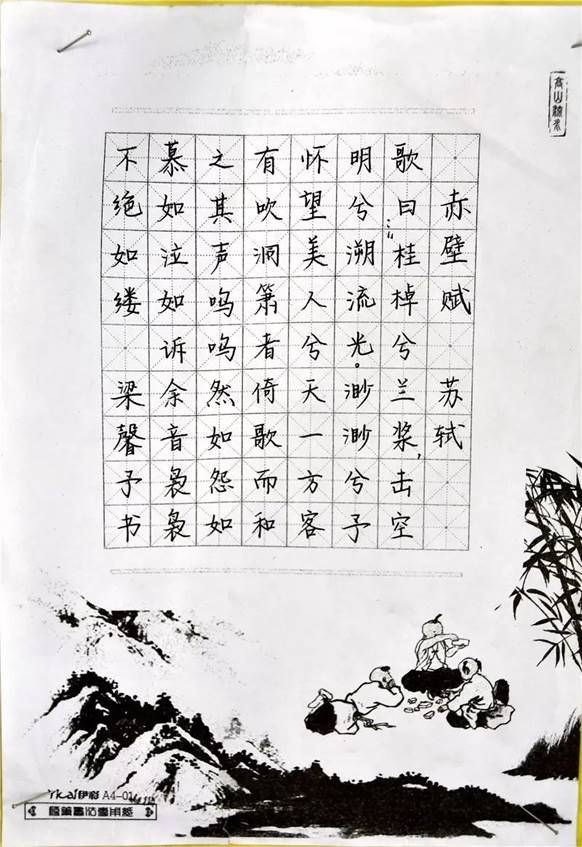 赤壁赋 苏轼
歌曰:“桂棹兮兰桨,击空
明兮溯流光。渺渺兮予
怀望美人兮天一方客
有吹洞箫者倚歌而和
之其声呜呜然如怨如
慕如泣如诉余音袅袅
不绝如缕 梁馨予书
高山流水
Yicai伊彩 A4-01